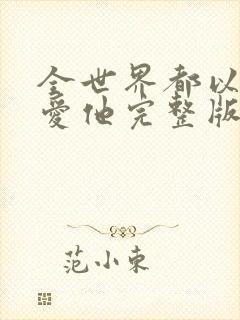 全世界都以
爱他完整版
范小东